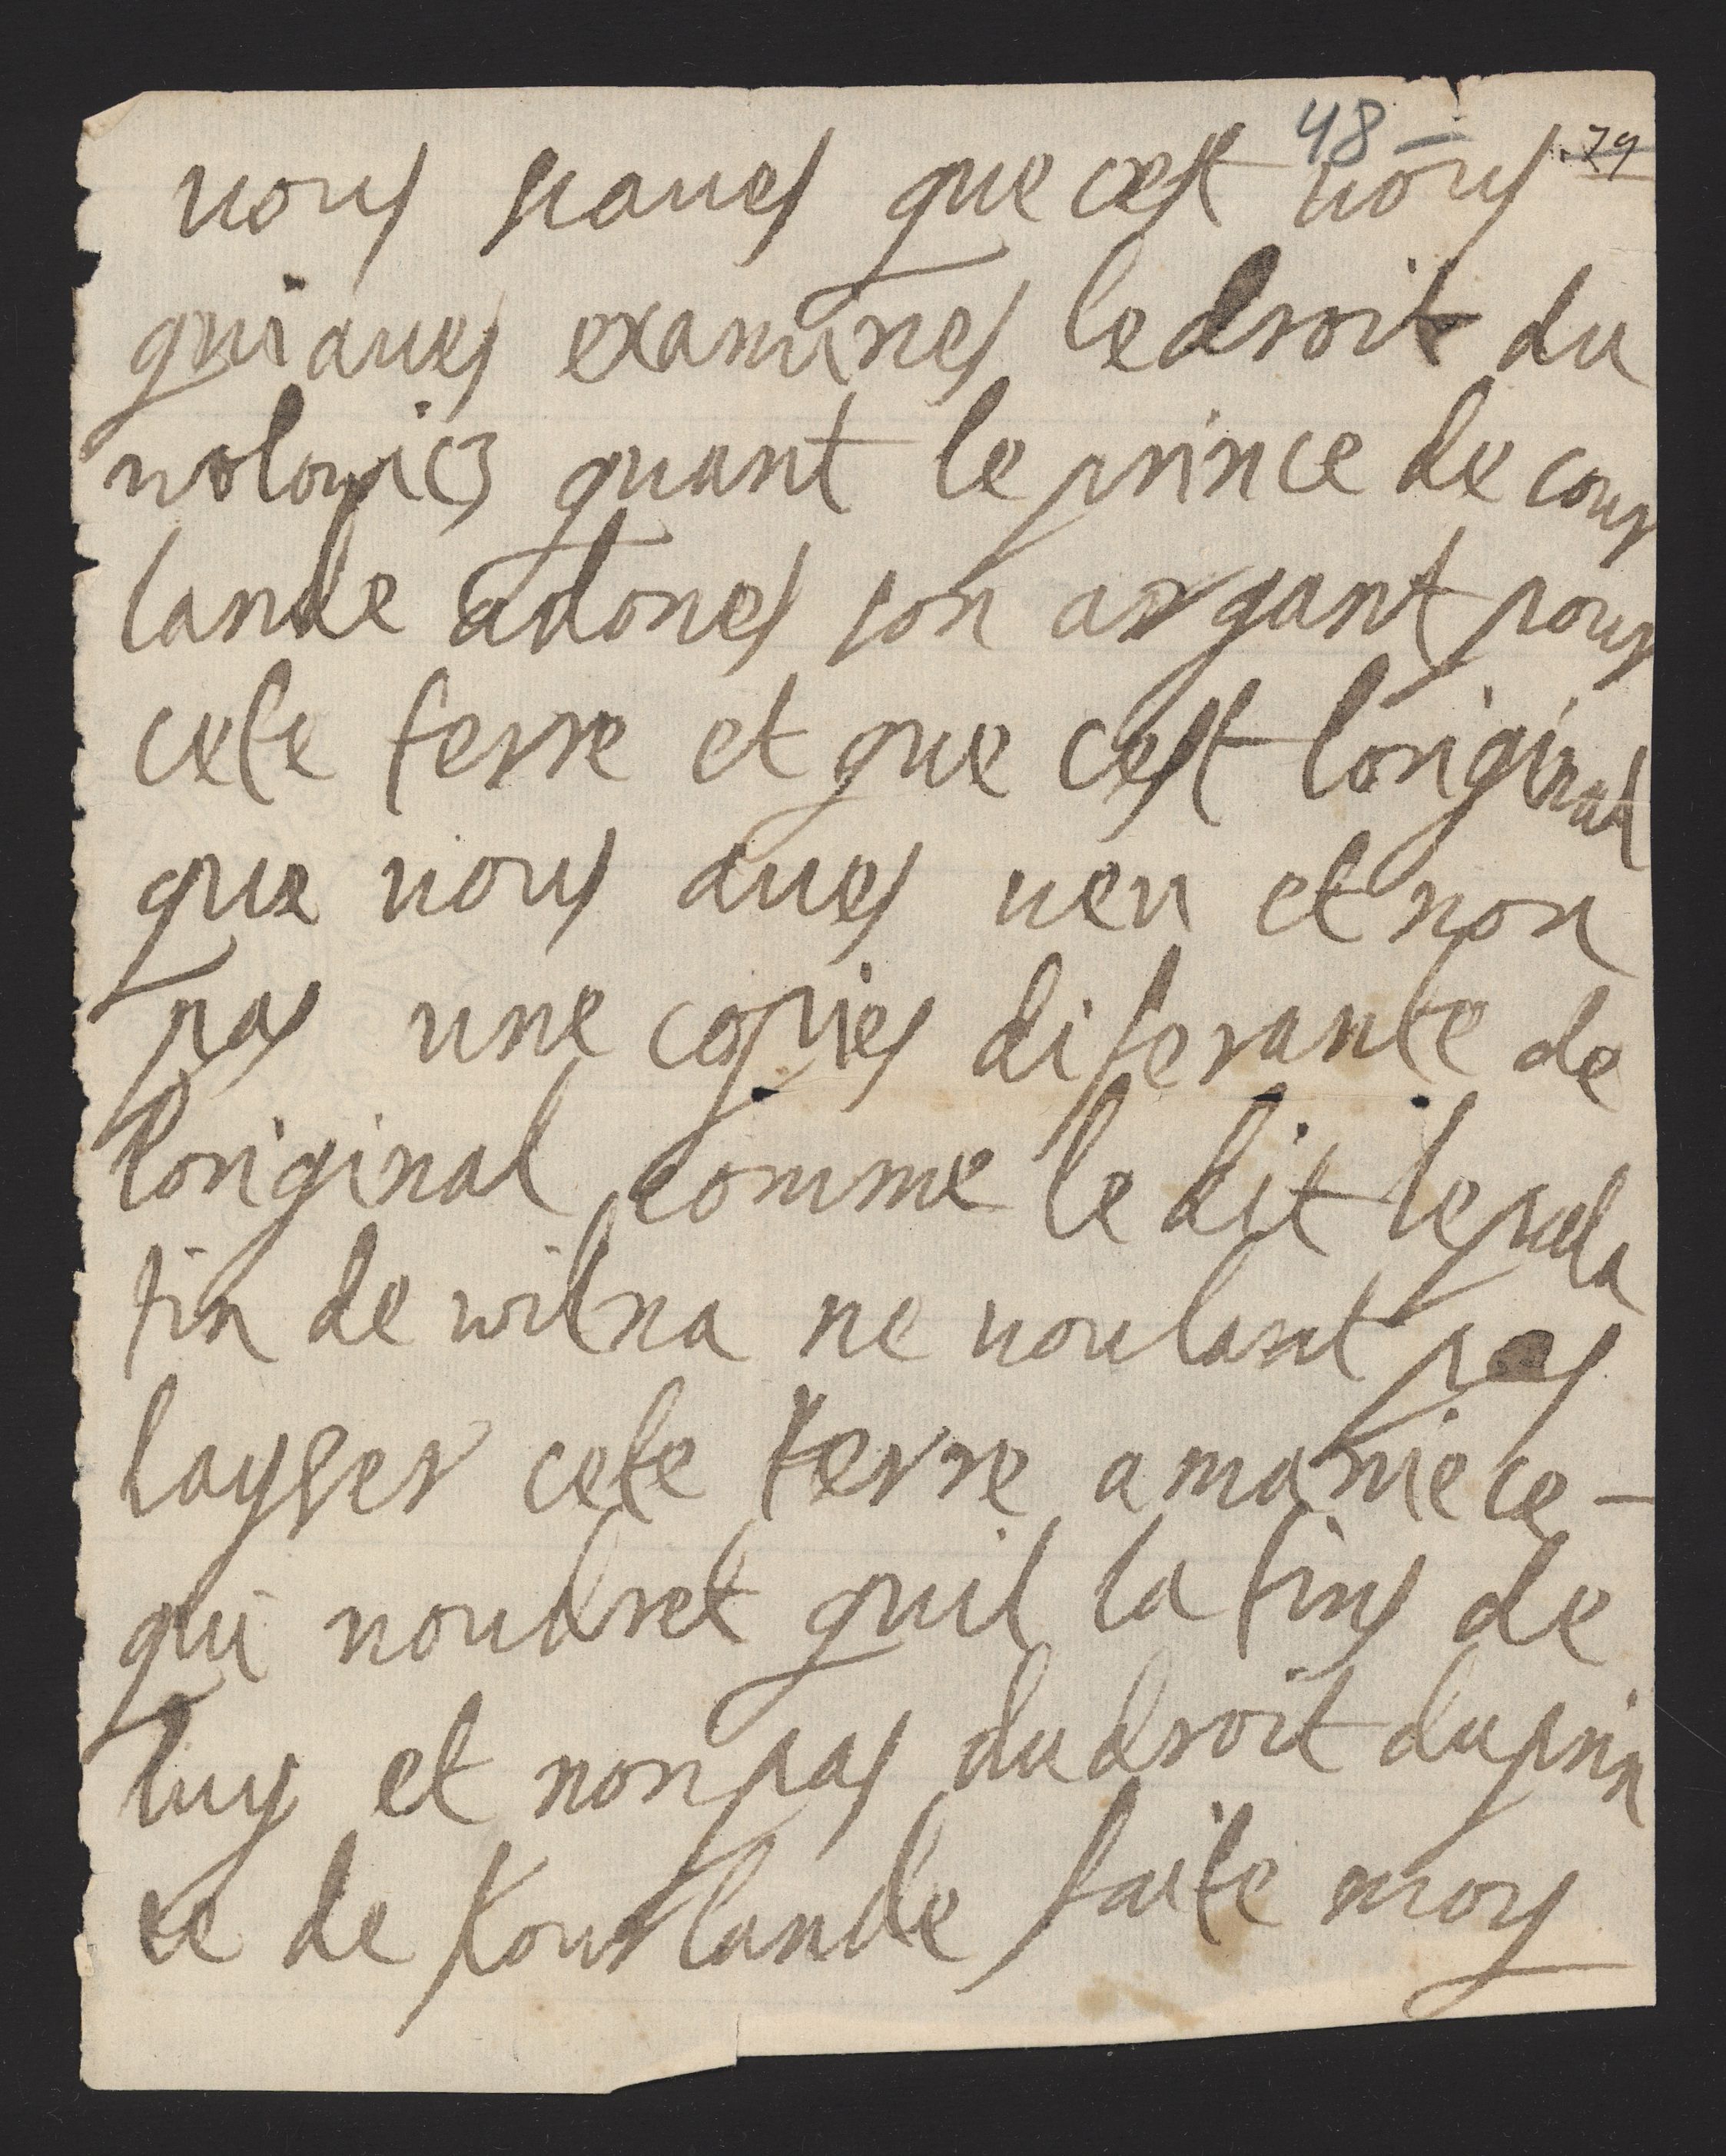 48 - 79
uous saues que cest uous
qui aues examines le droit du
wolowicz quant le prince de cour
lande adones son argant pour
cete terre et que cest loriginal
que uous aues ueu et non
pas une copies diferante de
loriginal comme le dit le pala
tin de wilna ne uoulant pas
laysser cete terre a ma niece -
qui uoudret quil la tins de
luy et non pas du droit du prin
ce de Kourlande faite moy